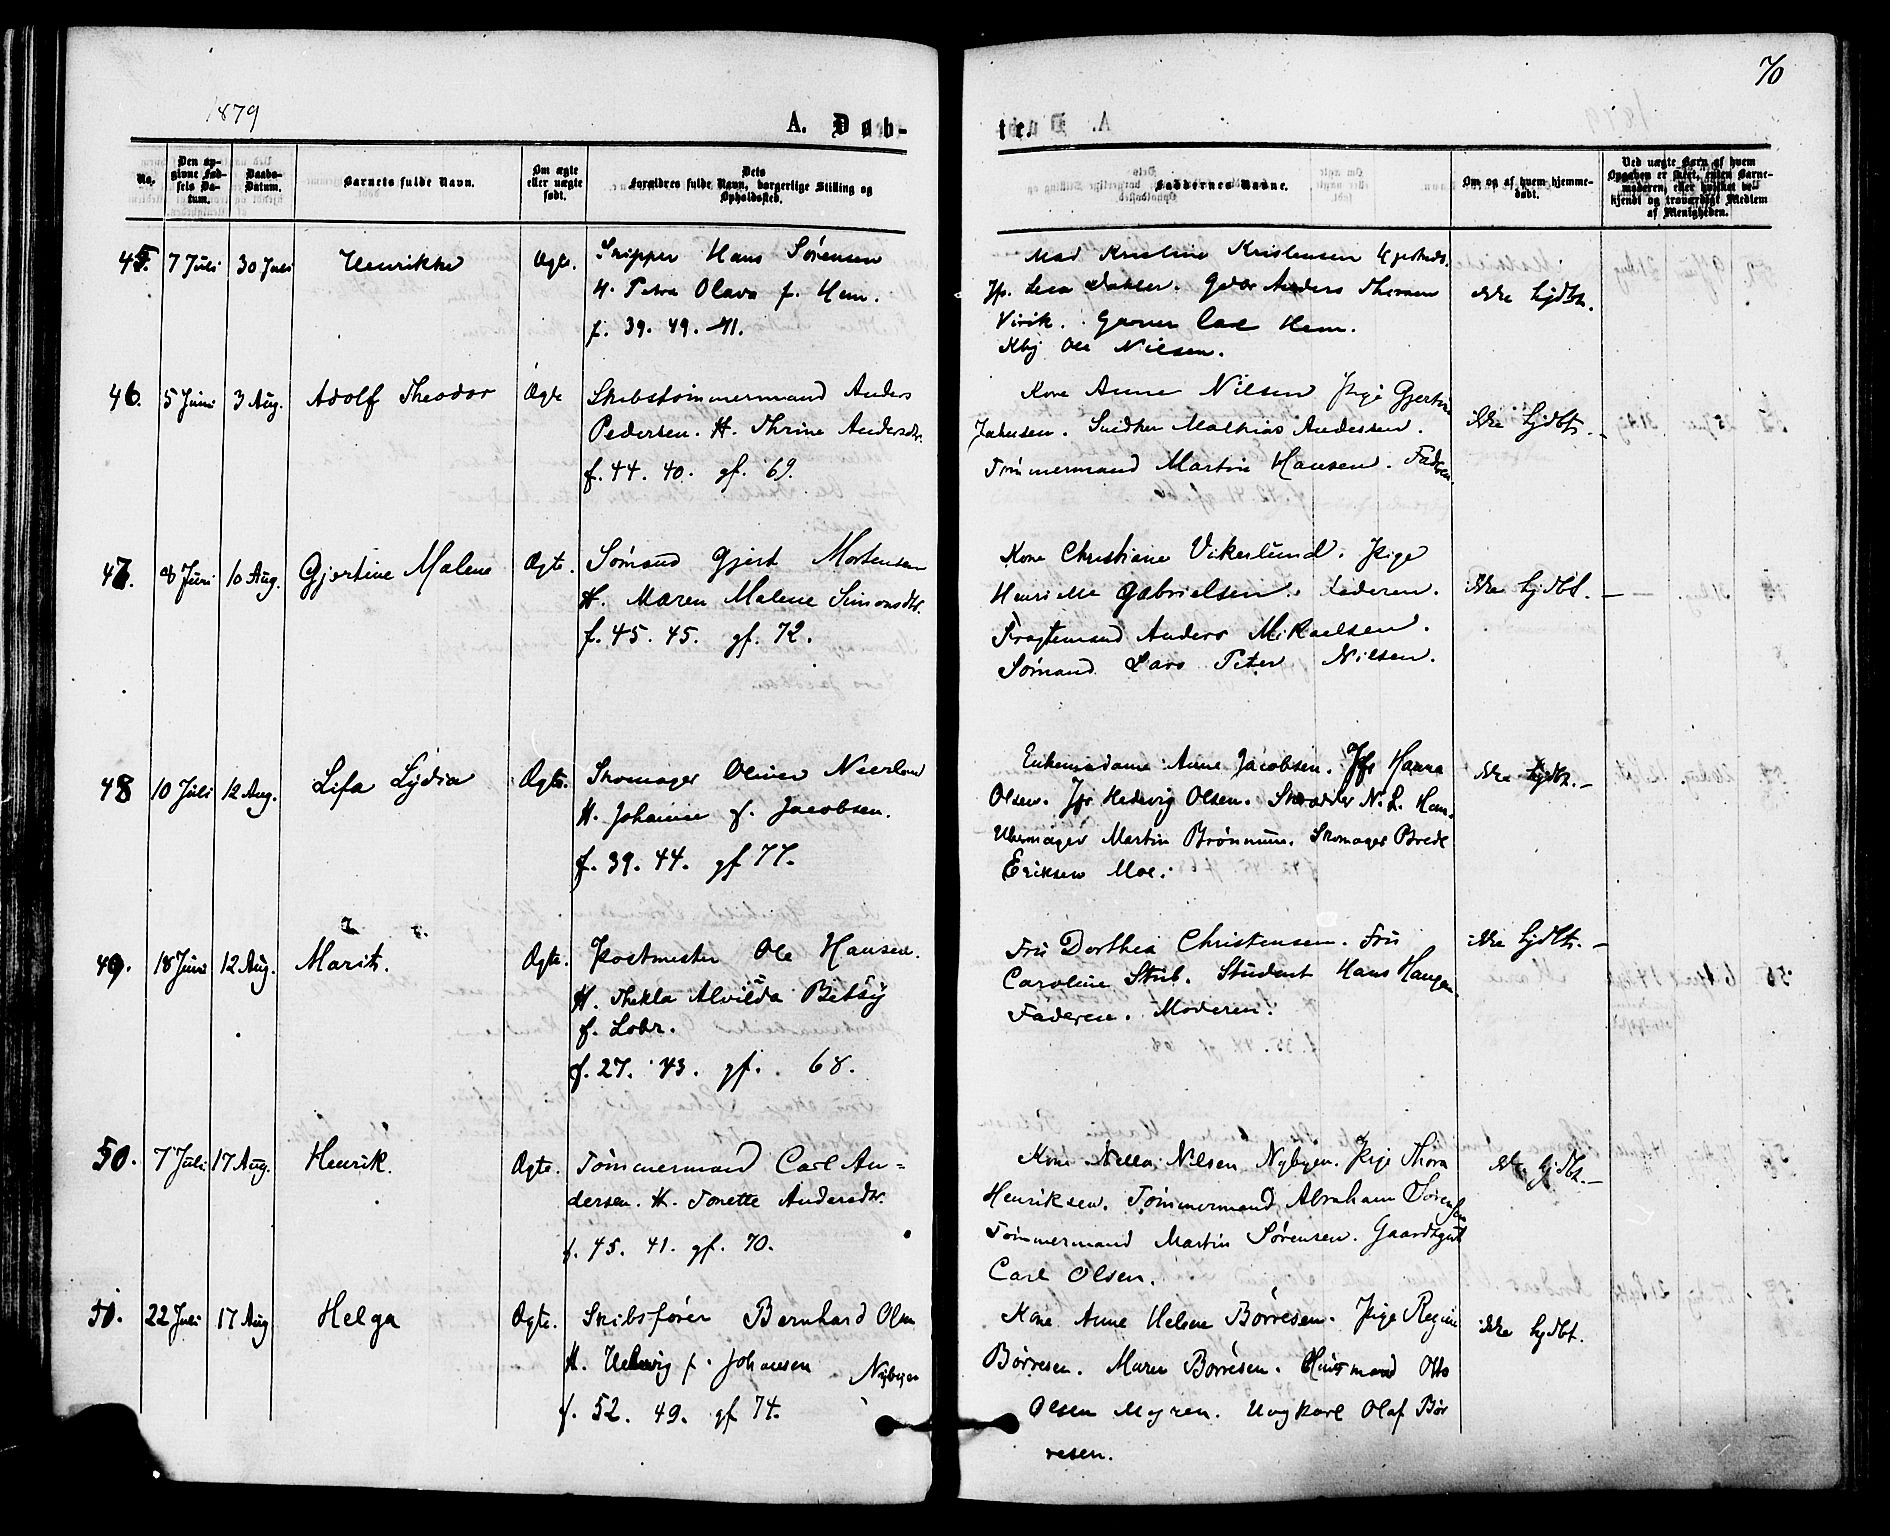 1879
70
A. Døb-
te.
No.
Den op-
givne Fød-
sels Da-
tum.
Daabs-
Datum.
Barnets fulde Navn.
Om ægte
eller uægte
født.
Dets
Forældres fulde Navn, borgerlige Stilling og
Opholdssted.
Faddernes Navne.
Om og af hvem hjemme-
døbt.
Ved uægte Barn af hvem
Opgaven er skeet, enten Barne-
moderen, eller hvilket vel
kjendt og troværdigt Medlem
af Menigheden.
45. 7 Juli 30 Juli Henrikke Ægte. Skipper Hans Sørensen
H. Petra Olava f. Hem.
f. 39. 49. 71.
Mad Kristine Kristensen
Jfr. Lea Dahler. Anders Thorsen
Virik. Carl Hem.
Ole Nielsen.
ikke hjdbt.
46. 5 Juni 3 Aug. Adolf Theodor Ægte Skibstømmermand Anders
Pedersen. H. Thrine Andersdtr.
f. 44. 40. gf. 69.
Kone Anne Nilsen Pige Gjertine
Johnsen. Snedker Mathias Andersen.
Tømmermand Martin Hansen. Faderen
ikke hjdbt. —
47. 8 Juni 10 Aug. Gjertine Malene Ægte. Sømand Gjert Mortensen
H. Maren Malene Simonsdtr.
f. 45. 45. gf. 72.
Kone Christiane Vikerlund. Pige
Henriette Gabrielsen. Faderen.
Fragtemand Anders Mikaelsen.
Sømand Lars Peter Nilsen.
ikke hjdbt. —
48 10 Juli 12 Aug. Lifa Lydia Ægte. Skomager Oliver Neerland
H. Johanne f. Jacobsen.
f. 39. 44. gf 77.
Enkemadame Anne Jacobsen. Jfr Hanna
Olsen. Jfr Hedevig Olsen. Skrædder N. L. Hem.
Uhrmager Martin Brønmun. Skomager Brede
Eriksen Moe.
ikke hjdbt. —
49. 18 Juni 12 Aug. Marit. Ægte. Postmester Ole Hansen.
H. Thekla Alvilda Betsy
f. Lohr.
f. 27. 43. gf. 68.
Fru Dorthea Christensen. Fru
Caroline Strib. Student Hans Haugen.
Faderen. Moderen.
ikke hjdbt. —
50. 7 Juli 17 Aug. Henrik. Ægte. Tømmermand Carl An=
dersen. H. Tonette Andersdtr.
f. 45. 41. gf. 70.
Kone Nella Nilsen Nybyen. Pige Thora
Henriksen. Tømmermand Abraham Sørensen
Tømmermand Martin Sørensen. Gaardbgut
Carl Olsen.
ikke hjdbt. —
51. 22 Juli 17 Aug Helga Ægte. Skibsfører Bernhard Olsen
H. Hedevig f. Johansen Nybyen
f. 52. 49. gf 74.
Kone Anne Helene Børresen. Pige Regine
Børresen. Maren Børresen. Husmand Otto
Olsen Myren. Ungkarl Olaf Bør
resen.
ikke hjdbt.